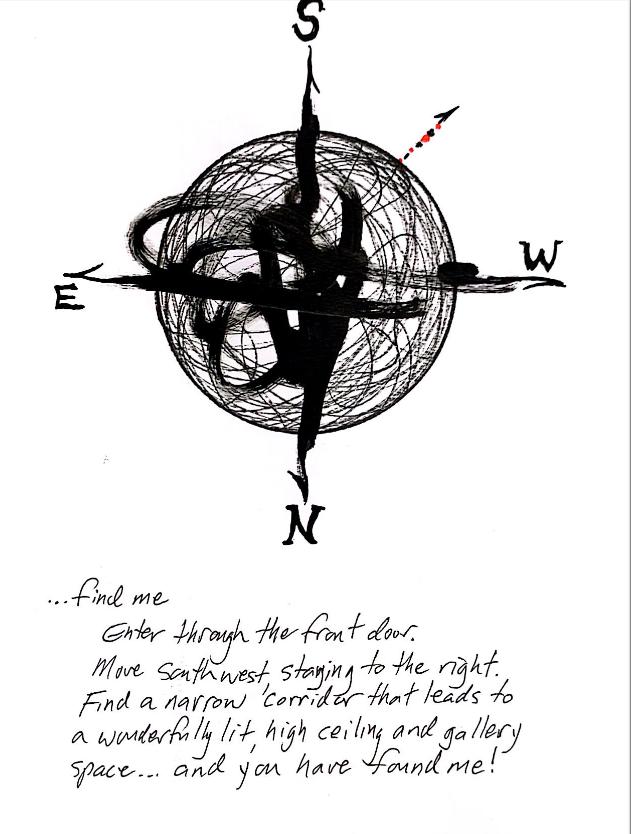 S
W
E
N
...find me
Enter through the front door.
Move Southwest, staying to the right.
Find a narrow corridor that leads to
a wonderfully lit, high ceiling and gallery
space... and you have found me!